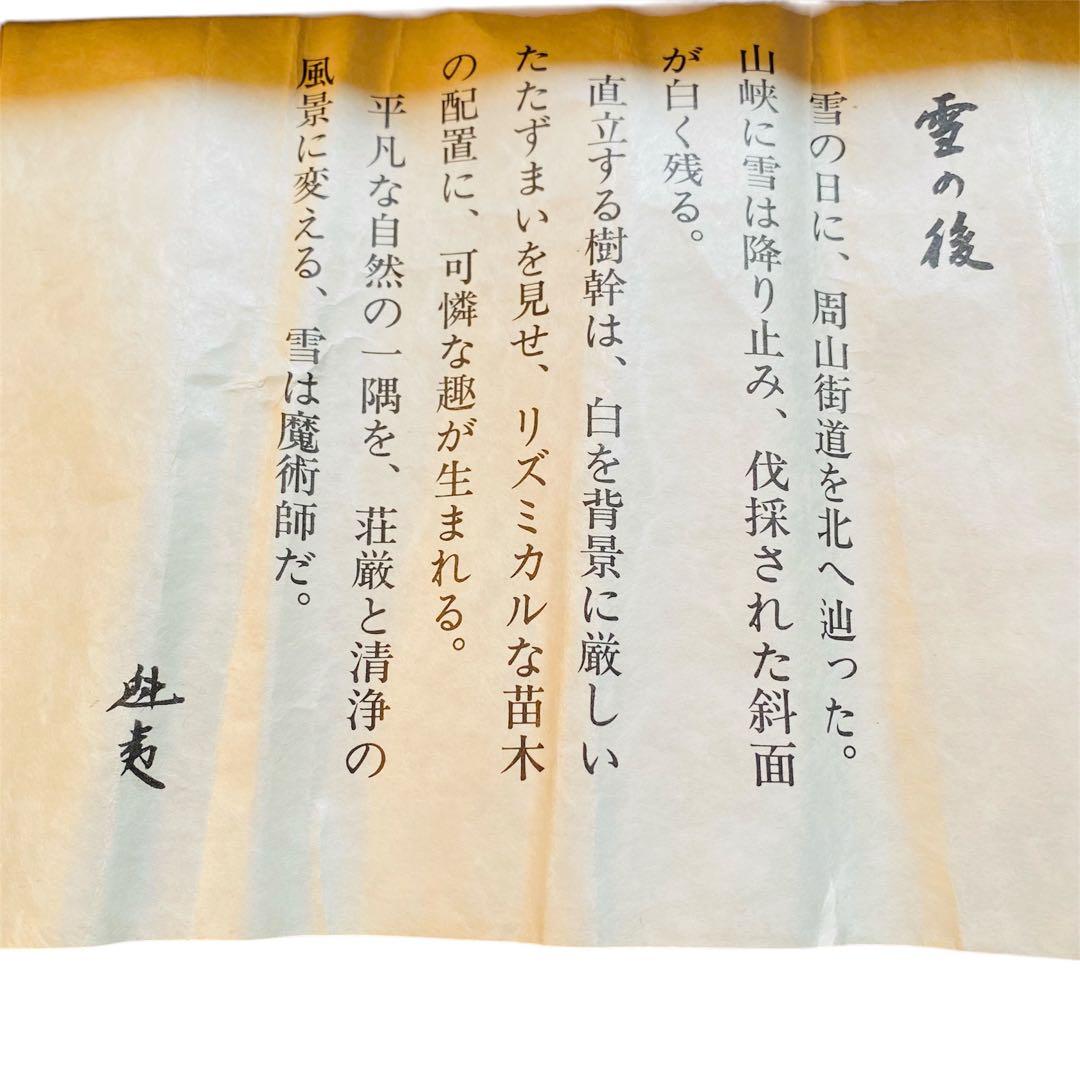 雪の後
雪の日に、周山街道を北へ辿った。
山峡に雪は降り止み、伐採された斜面
が白く残る。
直立する樹幹は、白を背景に厳しい
たたずまいを見せ、リズミカルな苗木
の配置に、可憐な趣が生まれる。
平凡な自然の一隅を、荘厳と清浄の
風景に変える、雪は魔術師だ。
魁夷